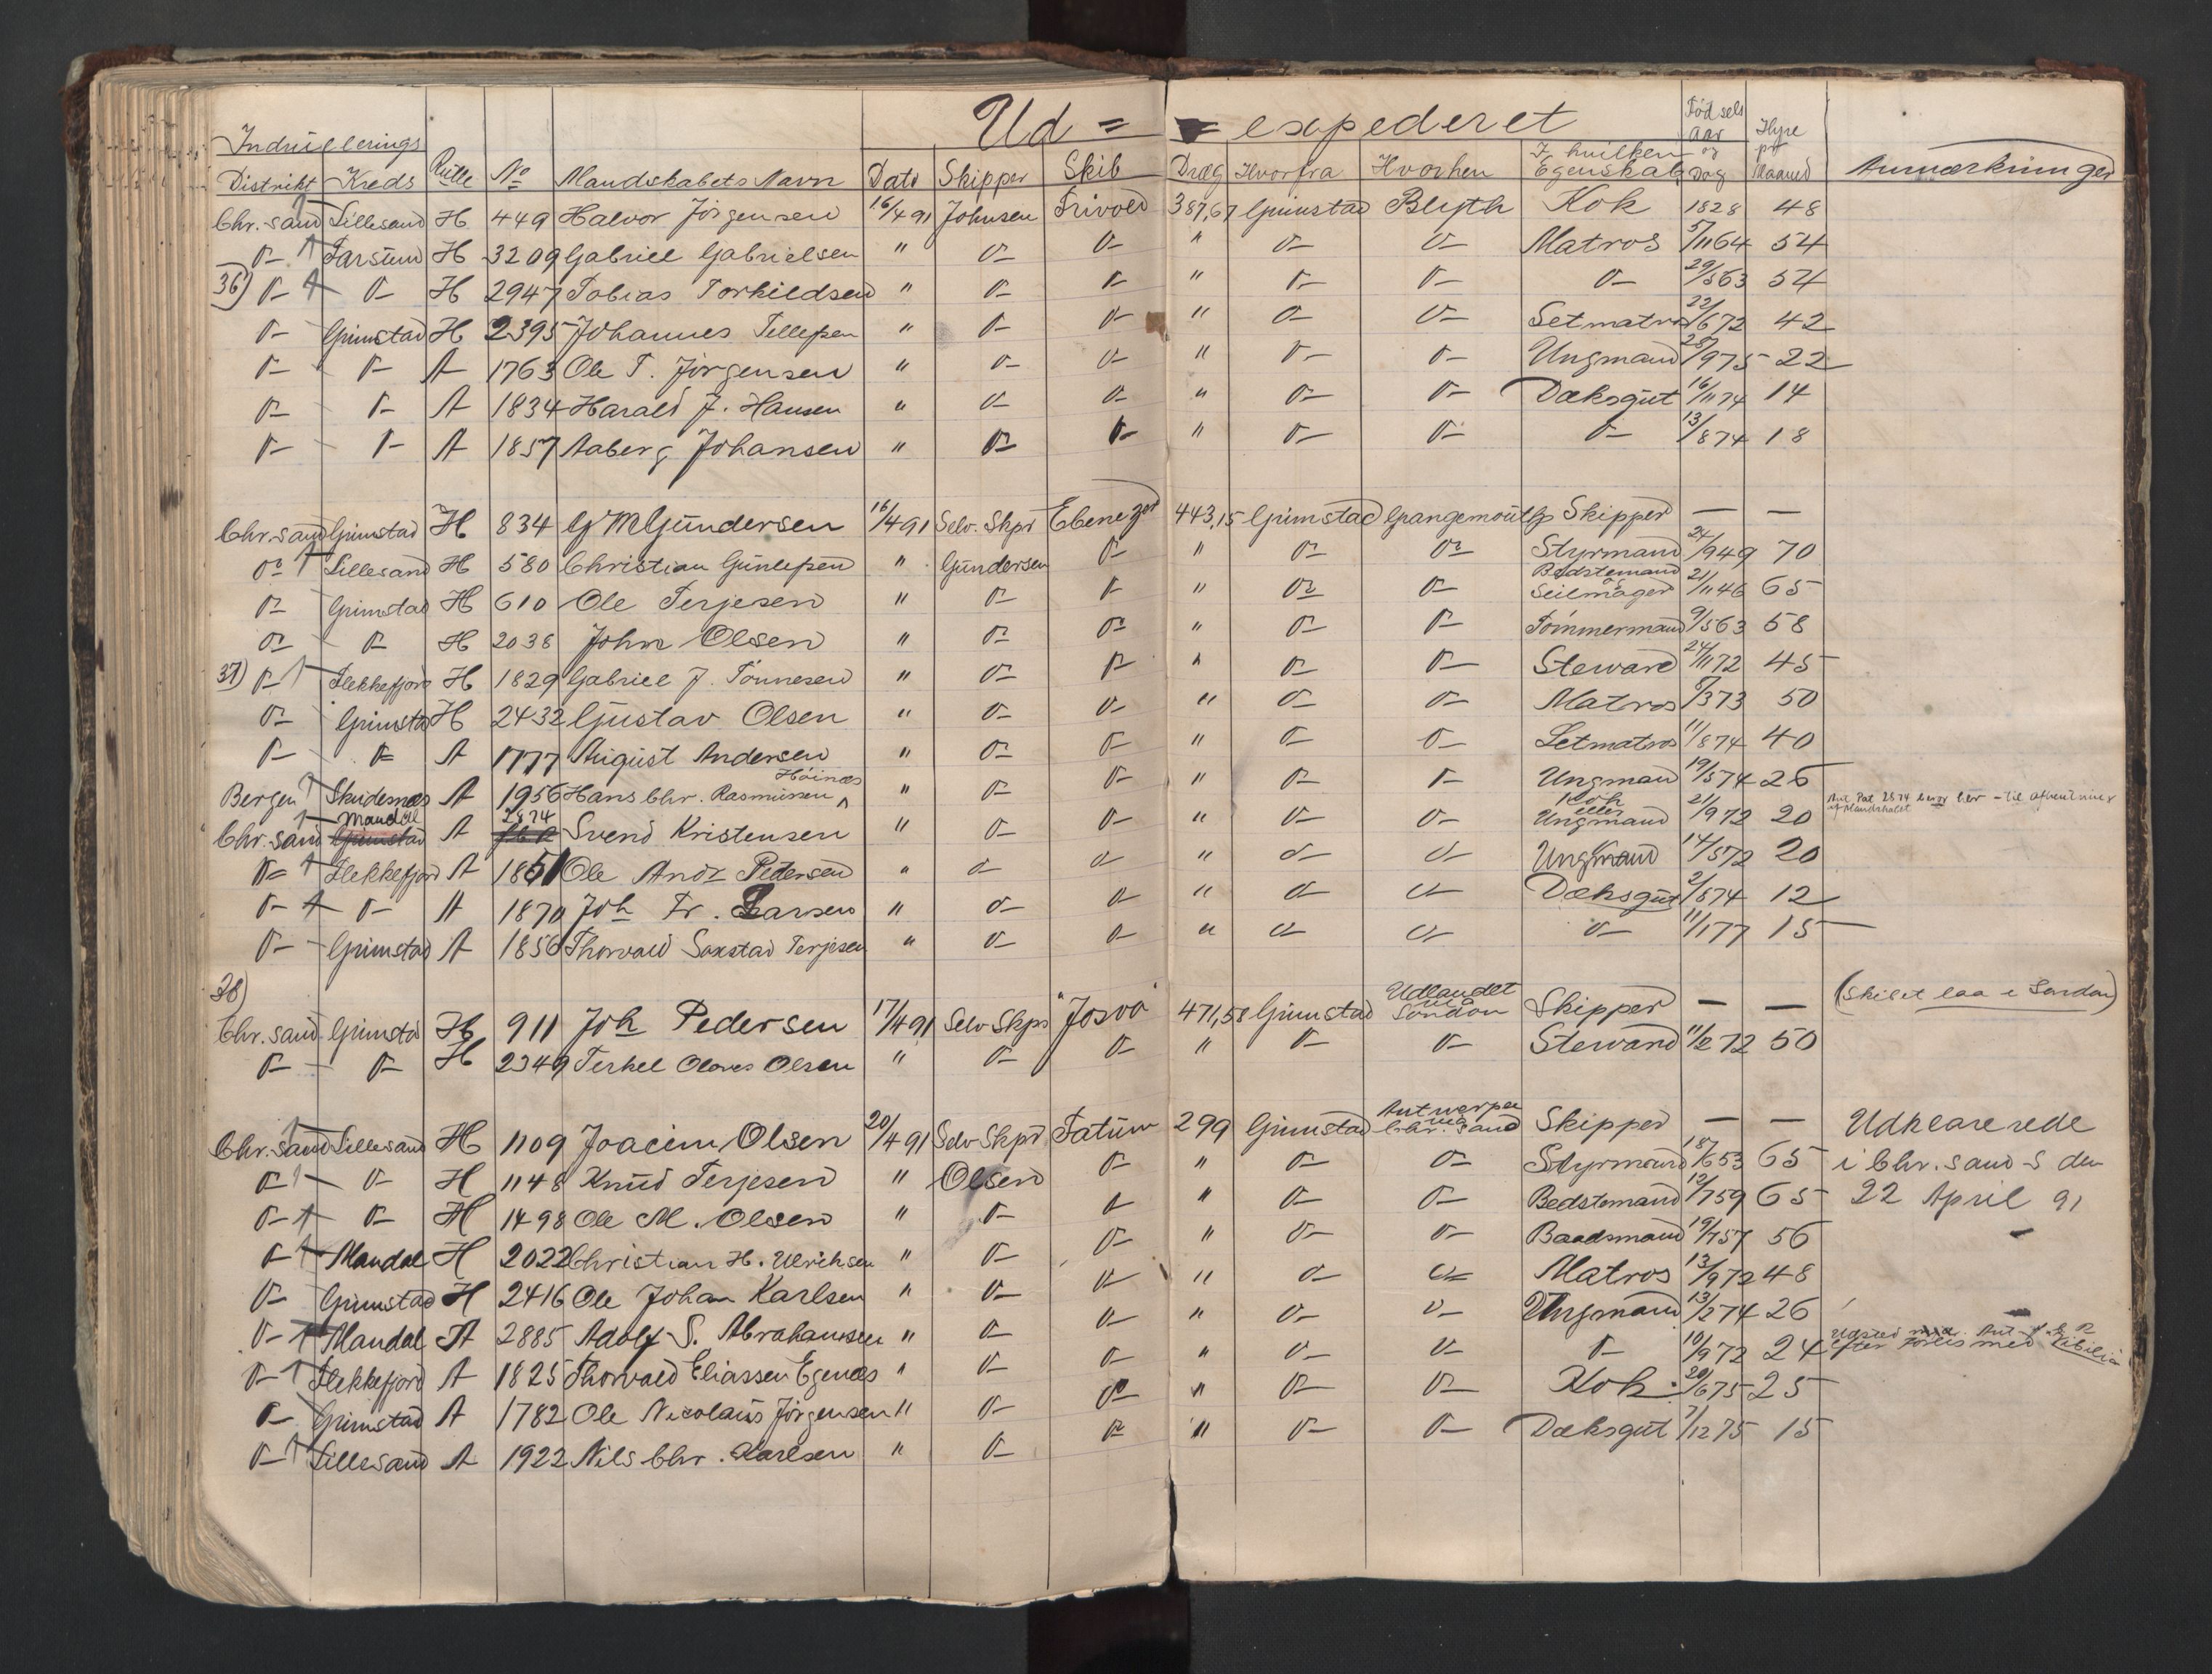 Ud = = expederet
Indrullerings
Distrikt Kreds Rulle No Mandskabets Navn Dato Skipper Skib Dræg Hvorfra Hvorhen I hvilken Egenskab Fødsels Aar og Dag Hyre pr Maaned Anmærkninger
Chr.sand Lillesand H 449 Halvor Jörgensen 16/4 91 Johnsen Trivold 387,67 Grimstad Blyth Kok 1828 48
0– Farsund H 3209 Gabriel Gabrielsen " 0– 0– " 0– 0– Matros 5/11 64 54
36) 0– 0– H 2947 Tobias Torkildsen " 0– 0– " 0– 0– 0– 29/5 63 54
0– Grimstad H 2395 Johannes Tellefsen " 0– 0– " 0– 0– Letmatros 22/6 72 42
0– 0– A 1763 Ole T. Jörgensen " 0– 0– " 0– 0– Ungmand 28/9 75 22
0– 0– A 1834 Harald J. Hansen " 0– 0– " 0– 0– Dæksgut 16/11 74 14
0– 0– A 1857 Aaberg Johansen " 0– 0– " 0– 0– 0– 13/8 74 18
Chr.sand Grimstad H 834 G M Gundersen 16/4 91 Selv. Skpr Ebenezer 443,15 Grimstad Grangemouth Skipper – –
0– Lillesand H 580 Christian Gunlefsen " Gundersen 0– " 0– 0– Styrmand 24/9 49 70
0– Grimstad H 610 Ole Terjesen " 0– 0– " 0– 0– Bedstemand og Seilmager 21/11 46 65
0– 0– H 2038 John Olsen " 0– 0– " 0– 0– Tömmermand 9/5 63 58
37) 0– Flekkefjord H 1829 Gabriel J. Tönnesen " 0– 0– " 0– 0– Steward 24/11 72 45
0– Grimstad H 2432 Gustav Olsen " 0– 0– " 0– 0– Matros /3 73 50
0– 0– A 1777 August Andersen " 0– 0– " 0– 0– Letmatros 11/8 74 40
Bergen Skudesnæs A 1956 Hans Chr. Rasmussen Höinæs " 0– 0– " 0– 0– Ungmand 19/5 74 26
Chr.sand Mandal Grimstad A 2874 Svend Kristensen " 0– 0– " 0– 0– Kok eller Ungmand 21/9 72 20
0– Flekkefjord A 1851 Ole Andr Pedersen " 0– 0– " 0– 0– Ungmand 14/5 72 20
0– 0– A 1870 Joh Fr. Larsen " 0– 0– " 0– 0– Dæksgut 2/8 74 12
0– Grimstad A 1856 Thorvald Saxstad Terjesen " 0– 0– " 0– 0– 0– 11/1 77 15
38)
Chr.sand Grimstad H 911 Joh Pedersen 17/4 91 Selv Skpr "Josva" 471,58 Grimstad Udlandet via London Skipper – – (Skibet laa i London)
0– 0– H 2349 Terkel Olaves Olsen " 0– 0– " 0– 0– Steward 11/2 72 50
Chr.sand Lillesand H 1109 Joacim Olsen 20/4 91 Selv Skpr Fatum 299 Grimstad Antwerpen via Chr. sand Skipper – – Udklarerede
0– 0– H 1148 Knud Terjesen " Olsen 0– " 0– 0– Styrmand 18/6 53 65 i Chr.sand S den
0– 0– H 1498 Ole M. Olsen " 0– 0– " 0– 0– Bedstemand 12/7 59 65 22 April 91
0– Mandal H 2022 Christian H. Ulriksen " 0– 0– " 0– 0– Baadsmand 19/1 57 56 –
0– Grimstad H 2416 Ole Johan Karlsen " 0– 0– " 0– 0– Matros 13/9 72 48
0– Mandal A 2885 Adolf S. Abrahamsen " 0– 0– " 0– 0– Ungmand 13/2 74 26 –
0– Flekkefjord A 1825 Thorvald Eliassen Egenæs " 0– 0– " 0– 0– 0– 10/9 72 24 efter Forlis med
0– Grimstad A 1782 Ole Nicolaus Jörgensen " 0– 0– " 0– 0– Kok 20/6 75 25
0– Lillesand A 1922 Nils Chr. Karlsen " 0– 0– " 0– 0– Dæksgut 7/12 75 15